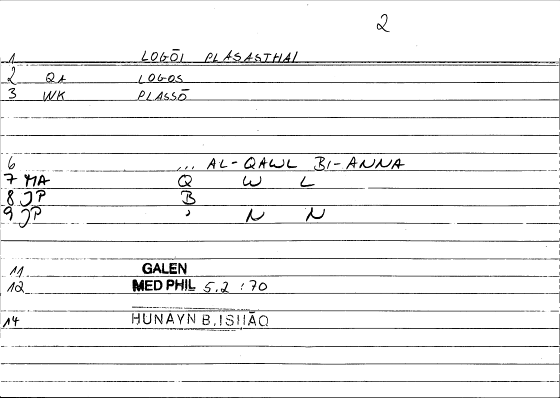 2
1 LOGŌI PLASASTHAI
2 QA LOGOS
3 WK PLASSŌ
6 ... AL-QAWL BI-ANNA
7 MA Q W L
8 JP B
9 JP ' N N
11 GALEN
12 MED PHIL 5.2 :70
14 HUNAYN B.ISḤĀQ